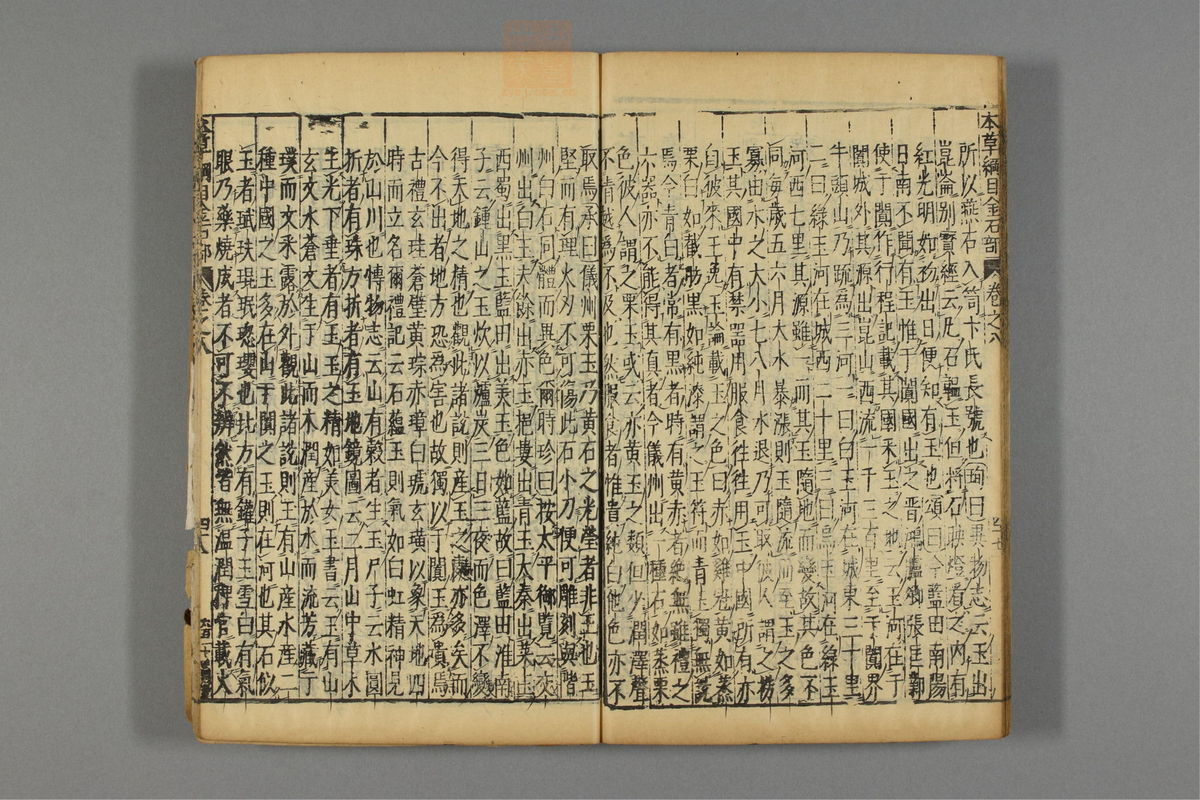 本草綱目金石部 卷之八
所以燕石入笥卞氏長號也 曰異物志云玉出
崑崙別寶經云凡石韞玉但將石映燈看之內有
紅光明如初出日便知有玉也頌曰今藍田南陽
日南不聞有玉惟于闐國出之晉鴻臚卿張匡鄴
使于闐作行程記載其國采玉之地云玉河在于
闐城外其源出崑山西流一千三百里至于闐界
牛頭山乃疏為三河一曰白玉河在城東三十里
二曰綠玉河在城西二十里三曰烏玉河在綠玉
河西七里其源雖一而其玉隨地而變故其色不
同每歲五六月大水暴漲則玉隨流而至玉之多
寡由水之大小七八月水退乃可取彼人謂之撈
玉其國中有禁器用服食往往用玉中國所有亦
自彼來王逸玉論載玉之色曰赤如雞冠黃如蒸
栗白如截肪黑如純漆謂之玉符而青玉獨無說
焉今青白者常有黑者時有黃赤者絕無雖禮之
六器亦不能得其真者今儀州出一種石如蒸栗
色彼人謂之栗玉或云亦黃玉之類但少潤澤聲
不清越為不及也然服食者惟貴純白他色亦不
取焉承曰儀州栗玉乃黃石之光瑩者非玉也玉
堅而有理火刃不可傷此石小刀便可雕刻與階
州白石同體而異色爾時珍曰按太平御覽云交
州出白玉夫餘出赤玉挹婁出青玉大秦出菜玉
西蜀出黑玉藍田出美玉色如藍故曰藍田淮南
子云鍾山之玉炊以爐炭三日三夜而色澤不變
得天地之精也觀此諸說則產玉之處亦多矣而
今不出者地方恐為害也故獨以于闐玉為貴焉
古禮玄珪蒼璧黃琮赤璋白琥玄璜以象天地四
時而立名爾禮記云石蘊玉則氣如白虹精神見
於山川也博物志云山有穀者生玉尸子云水圓
折者有珠方折者有玉地鏡圖云二月山中草木
生光下垂者有玉玉之精如美女玉書云玉有山
玄文水蒼文生于山而木潤產於水而流芳藏于
璞而文采露於外觀此諸說則玉有山產水產二
種中國之玉多在山于闐之玉則在河也其石似
玉者珷玞琨珉璁瓔也北方有罐子玉雪白有氣
眼乃藥燒成者不可不辨然皆無溫潤稗官載火
本草綱目金石部 卷之八 四十八